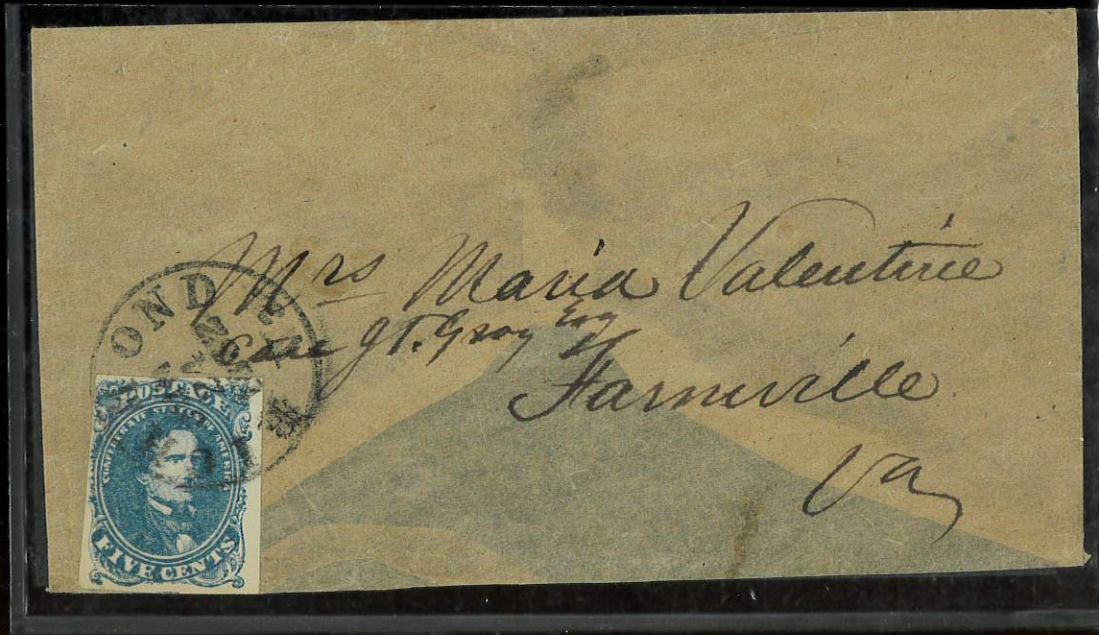 Mrs Maria Valentine
Care
Esq
Farmville
Va
OND VA
POSTAGE
CONFEDERATE STATES OF AMERICA
FIVE CENTS